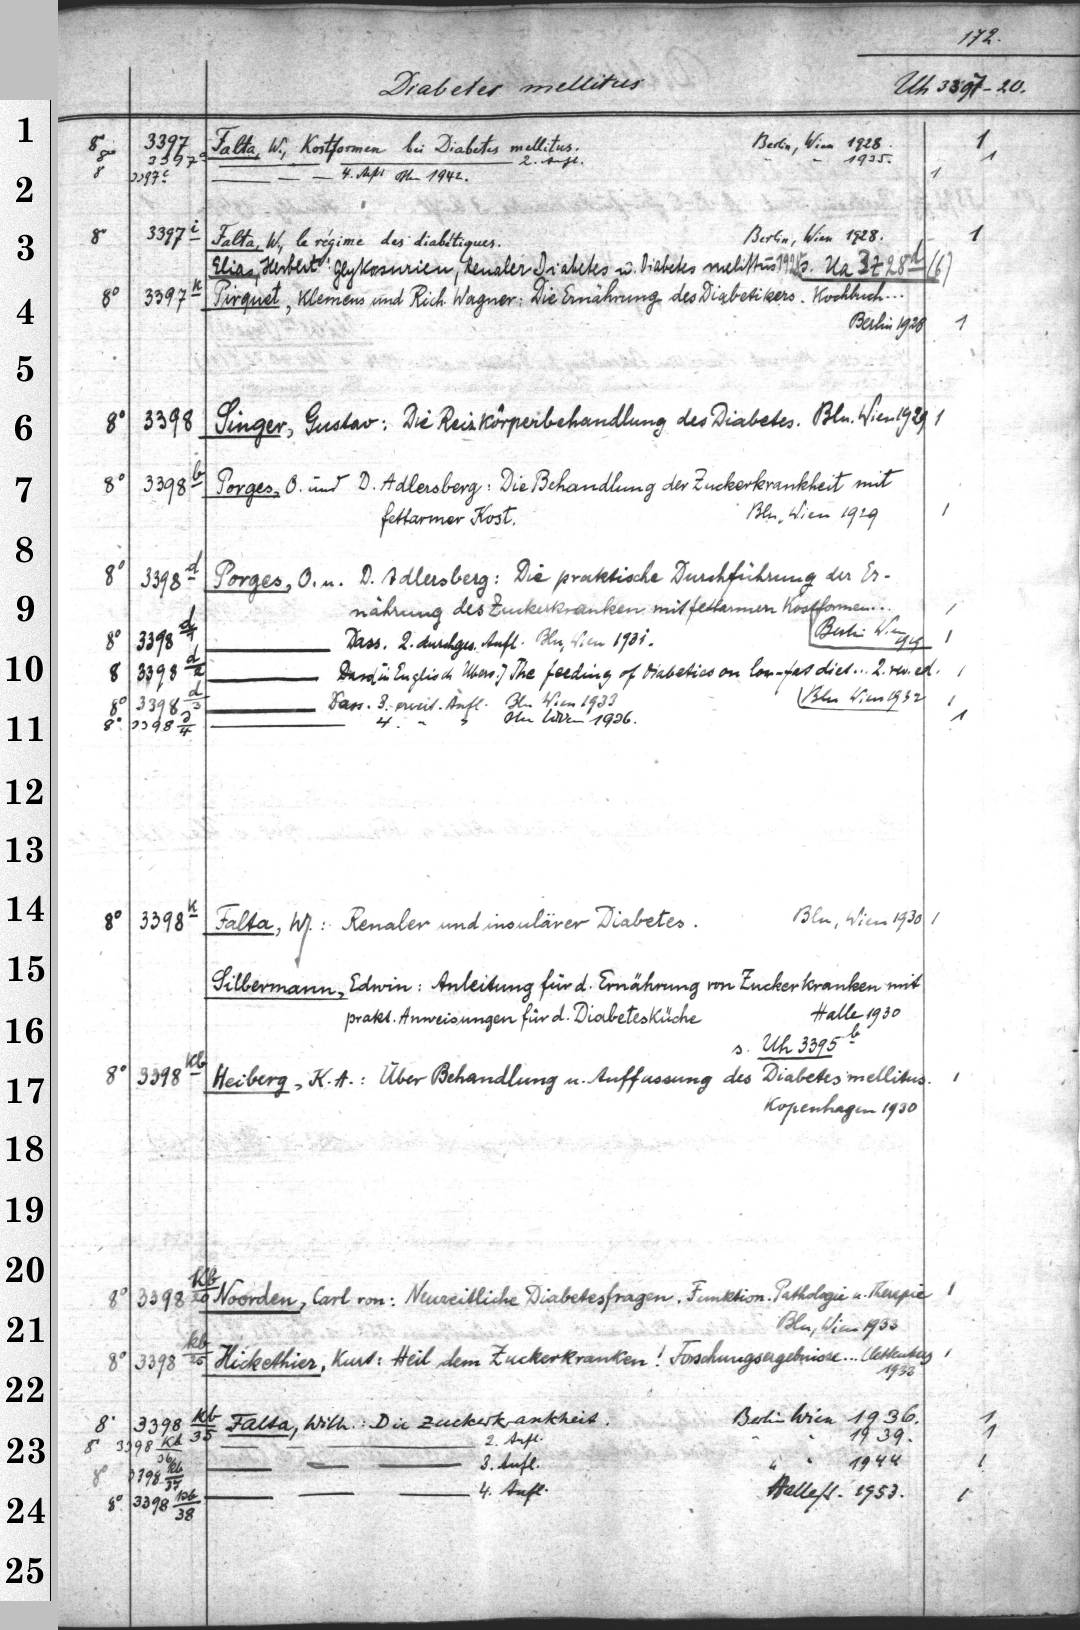 172.
Diabetes mellitus Uh 3397-20.
1
8° 3397 Falta, W., Kostformen bei Diabetes mellitus. Berlin, Wien 1928. 1
8° 3397a — — — 2. Aufl. " " 1935. 1
8 3397c — — — 4. Aufl. 1942. 1
2
3
8° 3397i Falta, W., le régime des diabétiques. Berlin, Wien 1928. 1
Elias, Herbert: Glykosurien, renaler Diabetes u. Diabetes mellitus s. Ua 3728d (6)
4
8° 3397k Pirquet, Klemens und Rich. Wagner: Die Ernährung des Diabetikers. Kochbuch...
Berlin 1928 1
5
6
8° 3398 Singer, Gustav: Die Reizkörperbehandlung des Diabetes. Bln. Wien 1929 1
7
8° 3398b Porges, O. und D. Adlersberg: Die Behandlung der Zuckerkrankheit mit
fettarmer Kost. Bln, Wien 1929 1
8
8° 3398d Porges, O. u. D. Adlersberg: Die praktische Durchführung der Er-
9
nährung des Zuckerkranken mit fettarmen Kostformen... 1
Berlin Wien 1929
8° 3398d/1 — Dass. 2. durchges. Aufl. Bln, Wien 1931. 1
10
8 3398d/2 — Dass. (in Englisch Übers.) The feeding of Diabetics on low-fat diet... 2. rev. ed. 1
Bln Wien 1932
8° 3398d/3 — Dass. 3. erweit. Aufl. Bln Wien 1933 1
8° 3398d/4 — 4. " " Bln Wien 1936. 1
11
12
13
14
8° 3398k Falta, W.: Renaler und insulärer Diabetes. Bln, Wien 1930 1
15
Silbermann, Edwin: Anleitung für d. Ernährung von Zuckerkranken mit
prakt. Anweisungen für d. Diabetesküche Halle 1930
16
s. Uh 3395b
17
8° 3398kb Heiberg, K. A.: Über Behandlung u. Auffassung des Diabetes mellitus. 1
Kopenhagen 1930
18
19
20
8° 3398kb/20 Noorden, Carl von: Neuzeitliche Diabetesfragen. Funktion. Pathologie u. Therapie 1
21
Bln, Wien 1933
8° 3398kb/25 Hickethier, Kurt: Heil dem Zuckerkranken! Forschungsergebnisse... 1
1933
22
8° 3398kb/35 Falta, Wilh.: Die Zuckerkrankheit. Berlin Wien 1936. 1
8° 3398kb/36 — — — 2. Aufl. " " 1939. 1
23
8° 3398kb/37 — — — 3. Aufl. " " 1944 1
24
8° 3398kb/38 — — — 4. Aufl. 1953. 1
25